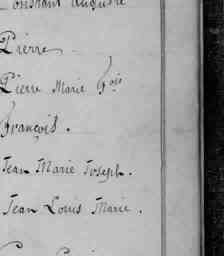 Constant Auguste
Pierre
Pierre Marie fois
François.
Jean Marie Joseph.
Jean Louis Marie.